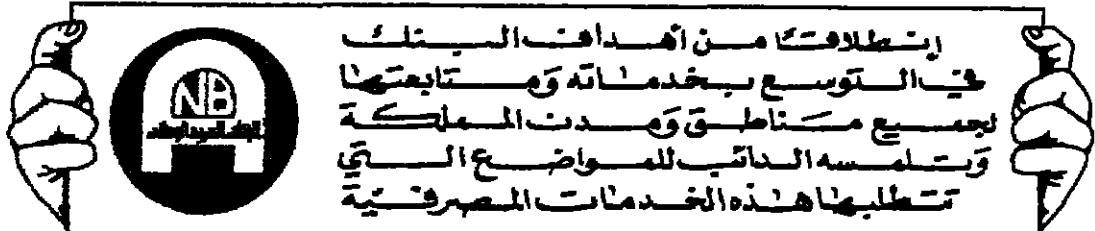 إنطلاقًا من أهداف البنك
في التوسع بخدماته ومتابعتها
لجميع مناطق ومدن المملكة
وتلمسه الدائب للمواضع التي
تتطلبها هذه الخدمات المصرفية
ANB
البنك العربي الوطني